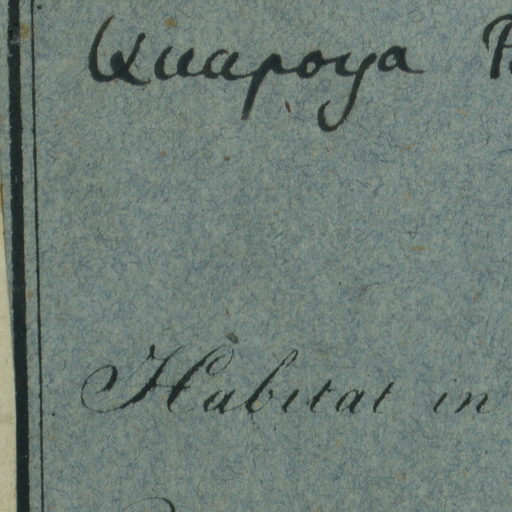 Quapoya
Habitat in